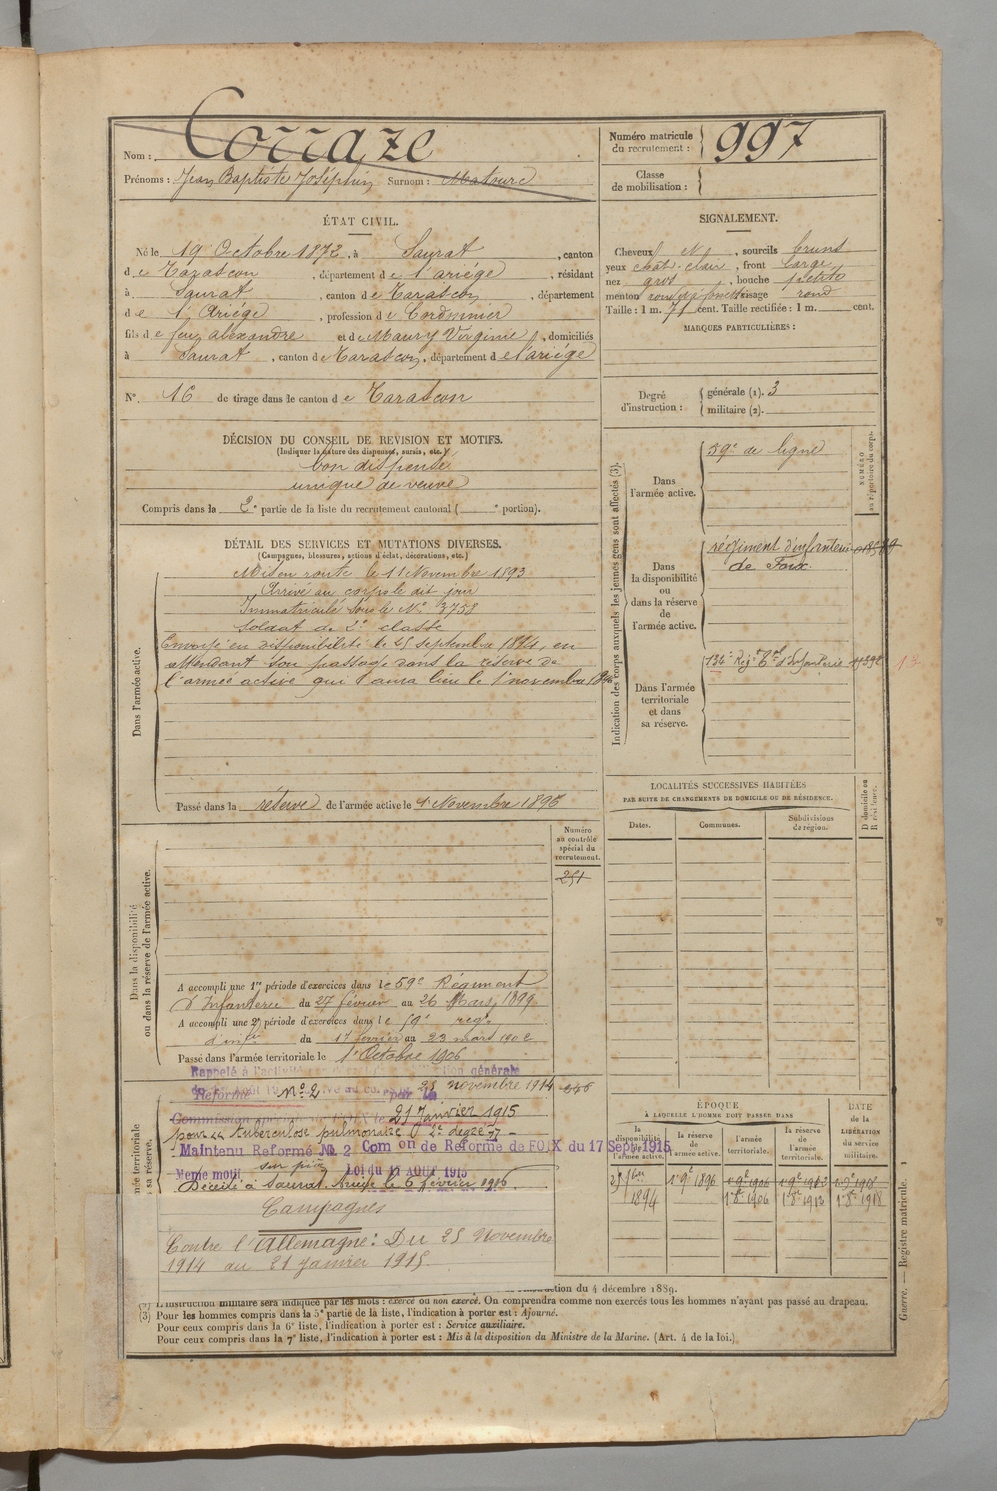 Nom : Corraze
Prénoms : Jean Baptiste Joséphin Surnom :
Numéro matricule du recrutement : 997
Classe de mobilisation :
ÉTAT CIVIL.
Né le 19 Octobre 1873, à Saurat, canton
de Tarascon, département de l'ariége, résidant
à Saurat, canton de Tarascon, département
de l'Ariége, profession de Cordonnier
fils de feu alexandre et de Maury Virginie, domiciliés
à Saurat, canton de Tarascon, département de l'ariége
N° 16 de tirage dans le canton de Tarascon
DÉCISION DU CONSEIL DE REVISION ET MOTIFS.
(Indiquer la nature des dispenses, sursis, etc.)
bon dispensé
unique de veuve
Compris dans la 2e partie de la liste du recrutement cantonal ( e portion).
DÉTAIL DES SERVICES ET MUTATIONS DIVERSES.
(Campagnes, blessures, actions d'éclat, décorations, etc.)
Dans l'armée active.
Mis en route le 11 Novembre 1893
Arrivé au corps le dit jour
Immatriculé sous le N° 3758
Soldat de 2e classe
Envoyé en disponibilité le 25 septembre 1894, en
attendant son passage dans la réserve de
l'armée active qui aura lieu le 1er novembre 1896
Passé dans la réserve de l'armée active le 1er Novembre 1896
Dans la disponibilité
ou dans la réserve de l'armée active.
Numéro
au contrôle
spécial du
recrutement.
251
A accompli une 1re période d'exercices dans le 59e Régiment
d'Infanterie du 27 février au 26 Mars 1899
A accompli une 2e période d'exercices dans le 59e reg.t
d'inf.ie du 17 février au 23 mars 1902
Passé dans l'armée territoriale le 1er Octobre 1906
Rappelé à l'activité générale
25 novembre 1914
Réformé N° 2 par la
Commission 21 Janvier 1915
pour Tuberculose pulmonaire 2e degré
Maintenu Reformé № 2 Com on de Réforme de FOIX du 17 Sept. 1915
Meme motif sur pièces Loi du 17 AOUT 1915
Décédé à Saurat, Ariège le 6 février 1916.
Campagnes
Contre l'Allemagne : Du 25 Novembre
1914 au 21 Janvier 1915.
SIGNALEMENT.
Cheveux et sourcils bruns
yeux chât. clair, front large
nez gros, bouche petite
menton rond et à fossette visage rond
Taille : 1 m. 71 cent. Taille rectifiée : 1 m. cent.
MARQUES PARTICULIÈRES :
Degré d'instruction : générale (1). 3
militaire (2).
Indication des corps auxquels les jeunes gens sont affectés (3).
NUMÉRO
au répertoire du corps.
Dans l'armée active. 59e de ligne
Dans la disponibilité ou dans la réserve de l'armée active. régiment d'infanterie
de Foix.
Dans l'armée territoriale et dans sa réserve. 134e Reg.t T.al d'Infanterie
LOCALITÉS SUCCESSIVES HABITÉES
PAR SUITE DE CHANGEMENTS DE DOMICILE OU DE RÉSIDENCE.
D domicile ou
R résidence.
Dates. Communes. Subdivisions de région.
ÉPOQUE
À LAQUELLE L'HOMME DOIT PASSER DANS
DATE de la LIBÉRATION du service militaire.
la disponibilité de l'armée active. la réserve de l'armée active. l'armée territoriale. la réserve de l'armée territoriale.
25 7bre 1894 1er 9e 1896 1er 9e 1906 1er 9e 1912 1er 9e 1918
1er 8e 1906 1er 8e 1912 1er 8e 1918
Guerre. — Registre matricule. 1
du 4 décembre 1889.
L'instruction militaire sera indiquée par les mots : exercé ou non exercé. On comprendra comme non exercés tous les hommes n'ayant pas passé au drapeau.
(3) Pour les hommes compris dans la 5e partie de la liste, l'indication à porter est : Ajourné.
Pour ceux compris dans la 6e liste, l'indication à porter est : Service auxiliaire.
Pour ceux compris dans la 7e liste, l'indication à porter est : Mis à la disposition du Ministre de la Marine. (Art. 4 de la loi.)